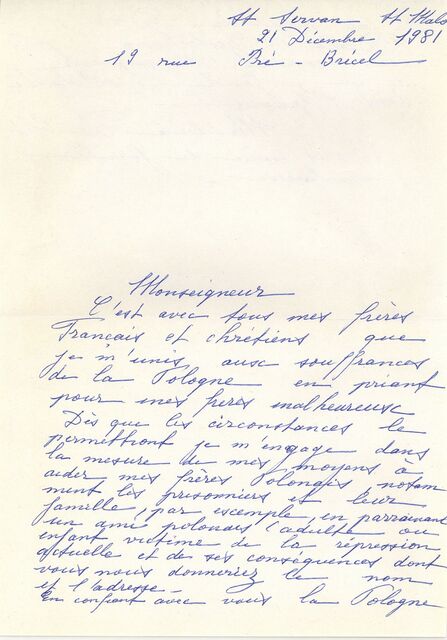 St Servan St Malo
21 Décembre 1981
19 rue Pré - Brécel
Monseigneur
C'est avec tous mes frères
Français et chrétiens que
je m'unis, aux souffrances
de la Pologne en priant
pour mes frères malheureux
Dès que les circonstances le
permettront je m'engage dans
la mesure de mes moyens à
aider mes frères Polonais, notam
ment les prisonniers et leur
famille, par exemple, en parrainant
un ami polonais (adulte ou
enfant victime de la répression
actuelle et de ses conséquences dont
vous nous donneriez le nom
et l'adresse -
En confiant avec vous la Pologne